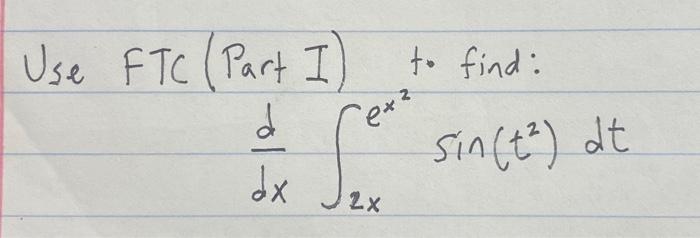 Use FTC (Part I) to find:
d/dx ∫_{2x}^{e^{x^2}} sin(t²) dt